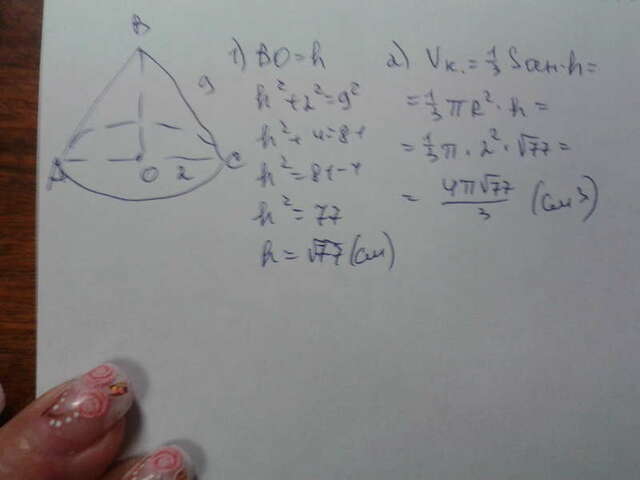 B
9
A
O
2
C
1) BO = h
h² + 2² = 9²
h² + 4 = 81
h² = 81 - 4
h² = 77
h = √77 (см)
2) Vк. = 1/3 Sосн · h =
= 1/3 π R² · h =
= 1/3 π · 2² · √77 =
= 4π√77/3 (см³)